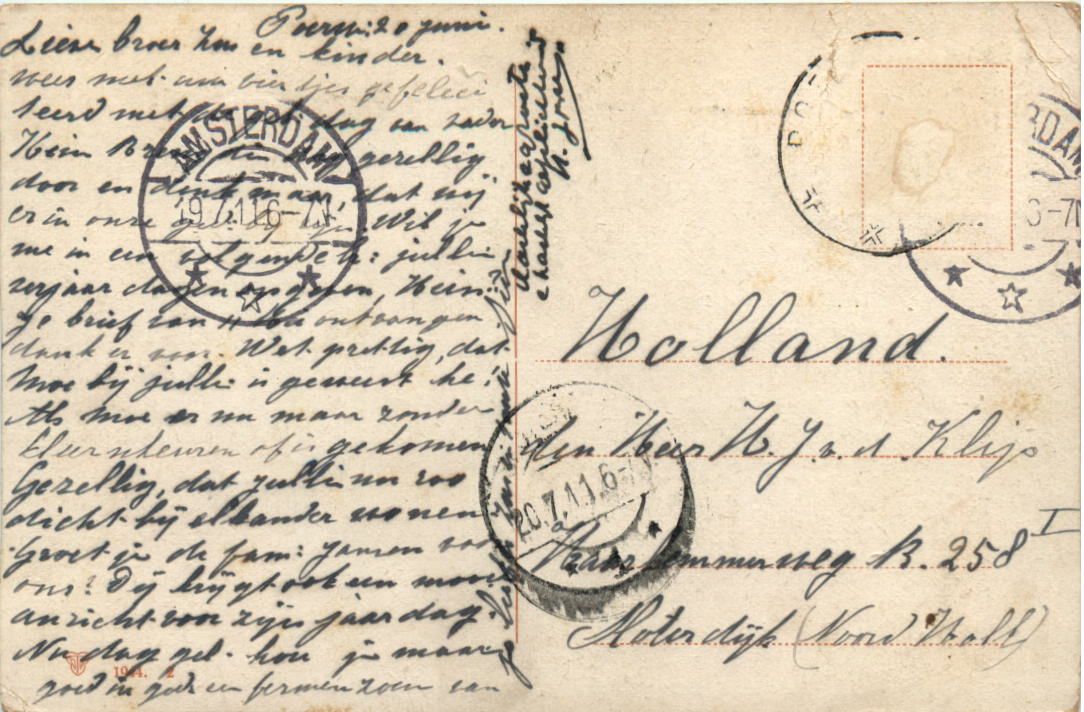 Poerw: 20 juni.
Lieve broer Hein en kinder.
weer met een viertjes gefelici
teerd met de verj: dag van vader
Hein Breng die dag gezellig
door en denk maar, dat wij
er in onze zijn. Wil je
me in een volgende k: jullie
verjaar dagen opgeven, Hein:
Je brief van 11 Mei ontvangen
dank er voor. Wat prettig, dat
Moe bij jullie is geweest he!
Als Moe er nu maar zonder
kleerscheuren of is gekomen
Gezellig, dat jullie nu zoo
dicht bij elkander wonen
Groet je de fam: Jansen voor
ons? Dij krijgt ook een mooi
anzicht voor zijn jaardag
Nu dag gel. hou je maar
goed in gods een fermen zoen van
Hartelijke groeten
AMSTERDAM
19.7.11.6-7N
1944. 2
Holland.
den Heer H. J. v. d. Klijs
Haarlemmerweg R. 258 I
Sloterdijk (Noord Holl)
20.7.11.6-7V
1
RDAM
6-7N